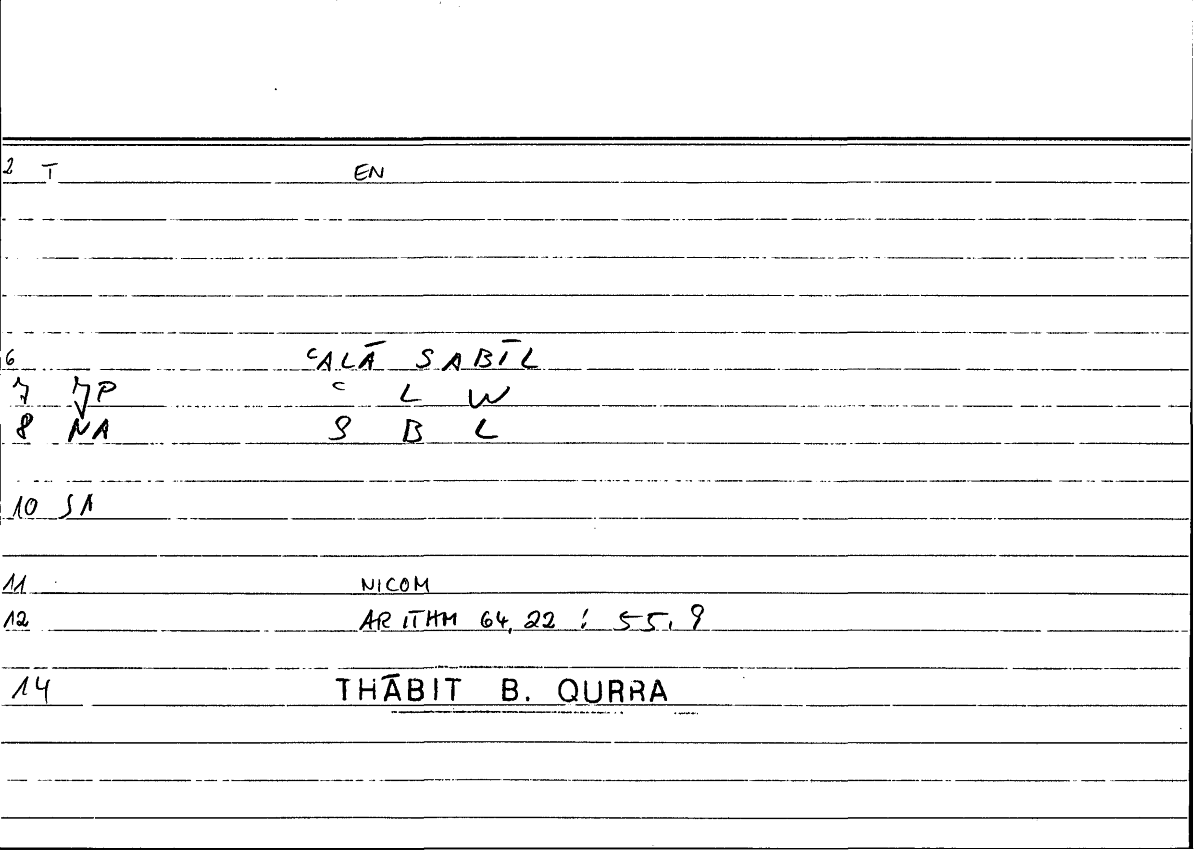 2 T EN
6 ᶜALĀ SABĪL
7 JP ᶜ L W
8 NA S B L
10 SA
11 NICOM
12 ARITHM 64,22 : 55,9
14 THĀBIT B. QURRA